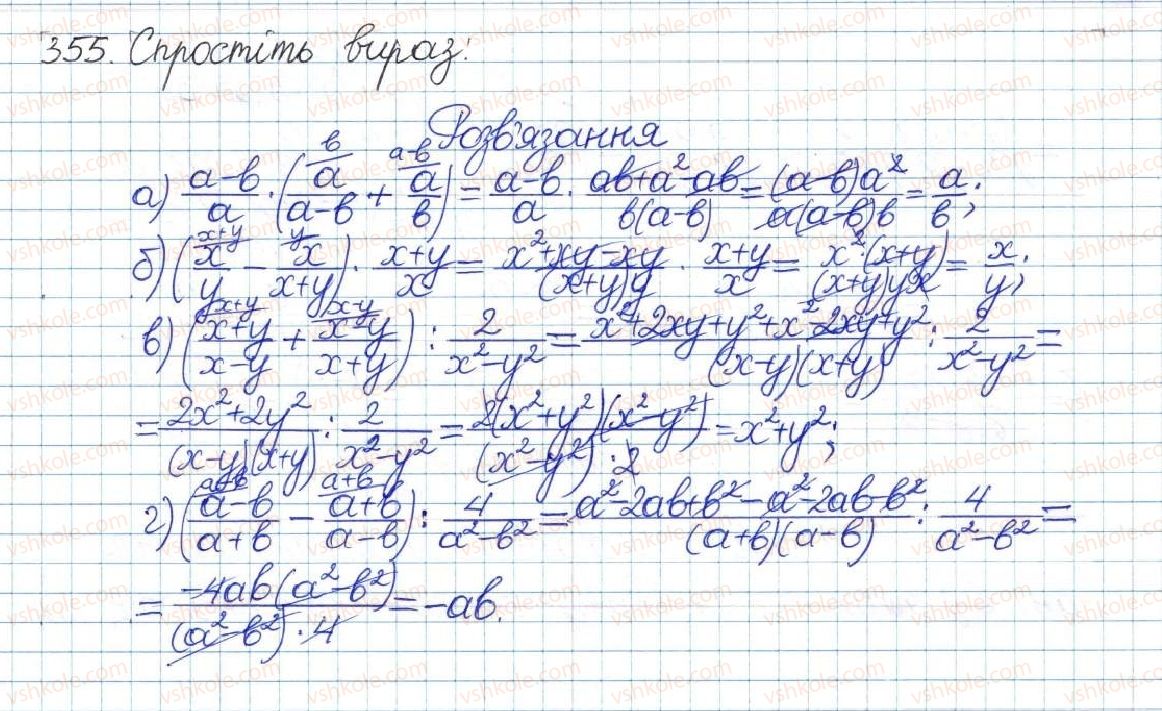 355. Спростіть вираз:
Розв'язання
а) (a-b)/a · (a/(a-b) + a/b) = (a-b)/a · (ab+a²-ab)/(b(a-b)) = ((a-b)a²)/(a(a-b)b) = a/b;
б) (x/y - x/(x+y)) · (x+y)/x = (x²+xy-xy)/((x+y)y) · (x+y)/x = (x²·(x+y))/((x+y)yx) = x/y;
в) ((x+y)/(x-y) + (x-y)/(x+y)) : 2/(x²-y²) = (x²+2xy+y²+x²-2xy+y²)/((x-y)(x+y)) : 2/(x²-y²) =
= (2x²+2y²)/((x-y)(x+y)) : 2/(x²-y²) = (2(x²+y²)(x²-y²))/((x²-y²)·2) = x²+y²;
г) ((a-b)/(a+b) - (a+b)/(a-b)) : 4/(a²-b²) = (a²-2ab+b²-a²-2ab-b²)/((a+b)(a-b)) : 4/(a²-b²) =
= (-4ab(a²-b²))/((a²-b²)·4) = -ab.
vshkole.com